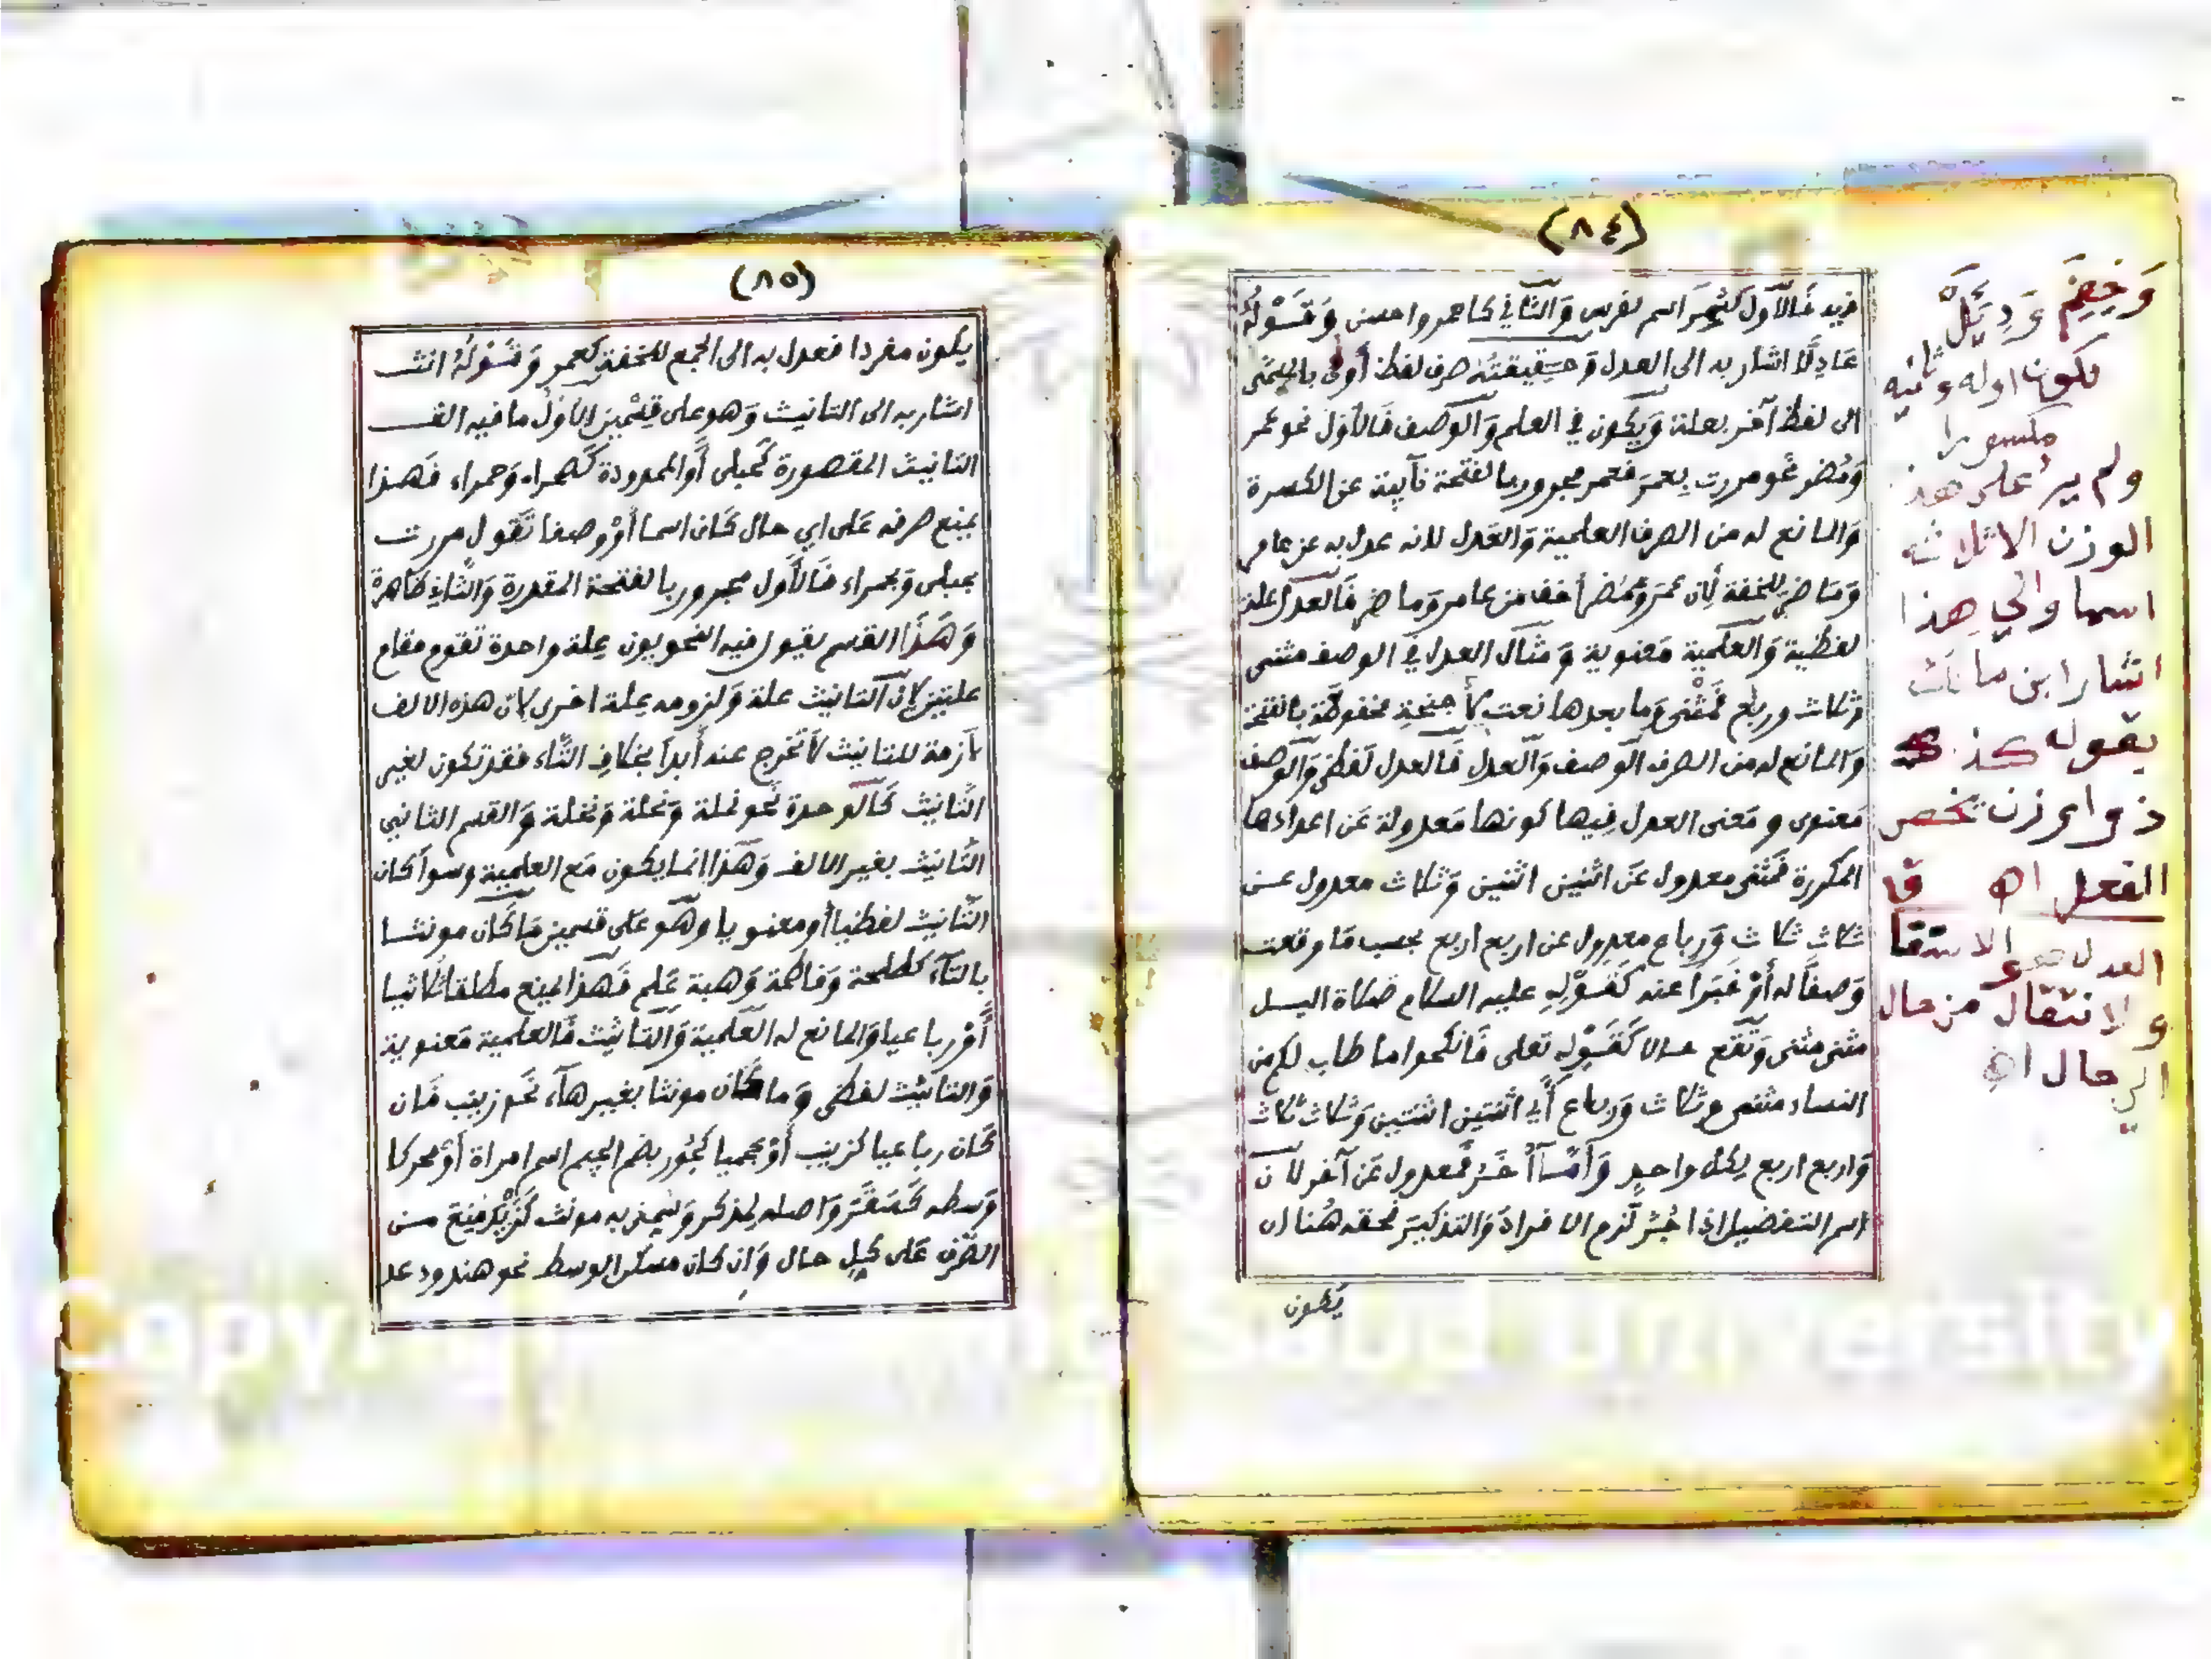 (٨٤)
فالأول كشمر اسم لفرس والثاني كاحمر واحسن وقوله
عادلا اشار به الى العدل وحقيقته صرف لفظ أولى بالمسمى
الى لفظ آخر بعلة ويكون في العلم والوصف فالأول نحو عمر
ومضر نحو مررت بعمر فعمر مجرور بالفتحة نآيبة عن الكسرة
والمانع له من الصرف العلمية والعدل لانه عدل به عن عامر
وماضر للخفة لان عمر ومضر أخف من عامر وماضر فالعدل علة
لفظية والعلمية معنوية ومثال العدل في الوصف مثنى
وثلاث ورباع فمثنى وما بعدها نعت لأجنحة مخفوظة بالفتحة
والمانع له من الصرف الوصف والعدل فالعدل لفظي والوصف
معنوي ومعنى العدل فيها كونها معدولة عن اعدادها
المكررة فمثنى معدول عن اثنين اثنين وثلاث معدول عن
ثلاث ثلاث ورباع معدول عن اربع اربع بحسب ما وقعت
وصفا له أو خبرا عنه كقوله عليه السلام صلاة اليل
مثنى مثنى وتقع حالا كقوله تعلى فانكحوا ما طاب لكم من
النساء مثنى وثلاث ورباع أي اثنتين اثنتين وثلاث ثلاث
واربع اربع لكل واحد وأمآ أخر فمعدول عن آخر لان
اسم التفضيل اذا لزم الافراد والتذكير فحقه هنا ان
يكون
وديل
بكون اوله وثانيه
مكسورا
ولم ير على هذ
الوزن الا ثلاثة
اسما والى هذا
اشار ابن مالك
بقوله كذ
ذو وزن يخص
الفعل اه
العدل هو
والانتقال من حال
الى حال اه
(٨٥)
يكون مفردا فعدل به الى الجمع للخفة كعمر وقوله انث
اشار به الى التانيث وهو على قسمين الاول ما فيه الف
التانيث المقصورة كحبلى أو الممدودة كصحراء وحمراء فهذا
يمنع صرفه على اي حال كان اسما أو وصفا تقول مررت
بحبلى وبحمراء فالأول مجرور بالفتحة المقدرة والثاني ظاهرة
وهذا القسم يقول فيه النحويون علة واحدة تقوم مقام
علتين لان التانيث علة ولزومه علة اخرى لان هذه الالف
لازمة للتانيث لا تخرج عنه أبدا بخلاف التاء فقد تكون لغير
التانيث كالوحدة نحو نملة ونحلة ونخلة والقسم الثاني
التانيث بغير الالف وهذا انما يكون مع العلمية وسوآ كان
التانيث لفظيا أو معنويا وهو على قسمين ما كان مونثا
بالتآء كطلحة وفاطمة وهبة علم فهذا يمنع مطلقا ثلاثيا
أو رباعيا والمانع له العلمية والتانيث فالعلمية معنوية
والتانيث لفظي وما كان مونثا بغير هآء نحو زينب فان
كان رباعيا كزينب أو عجميا كجور بضم الجيم اسم امراة أو محركا
وسطه كسقر واصله لمذكر وسمي به مونث كزيد منع من
الصرف على كل حال وان كان مسكن الوسط نحو هند ودعد